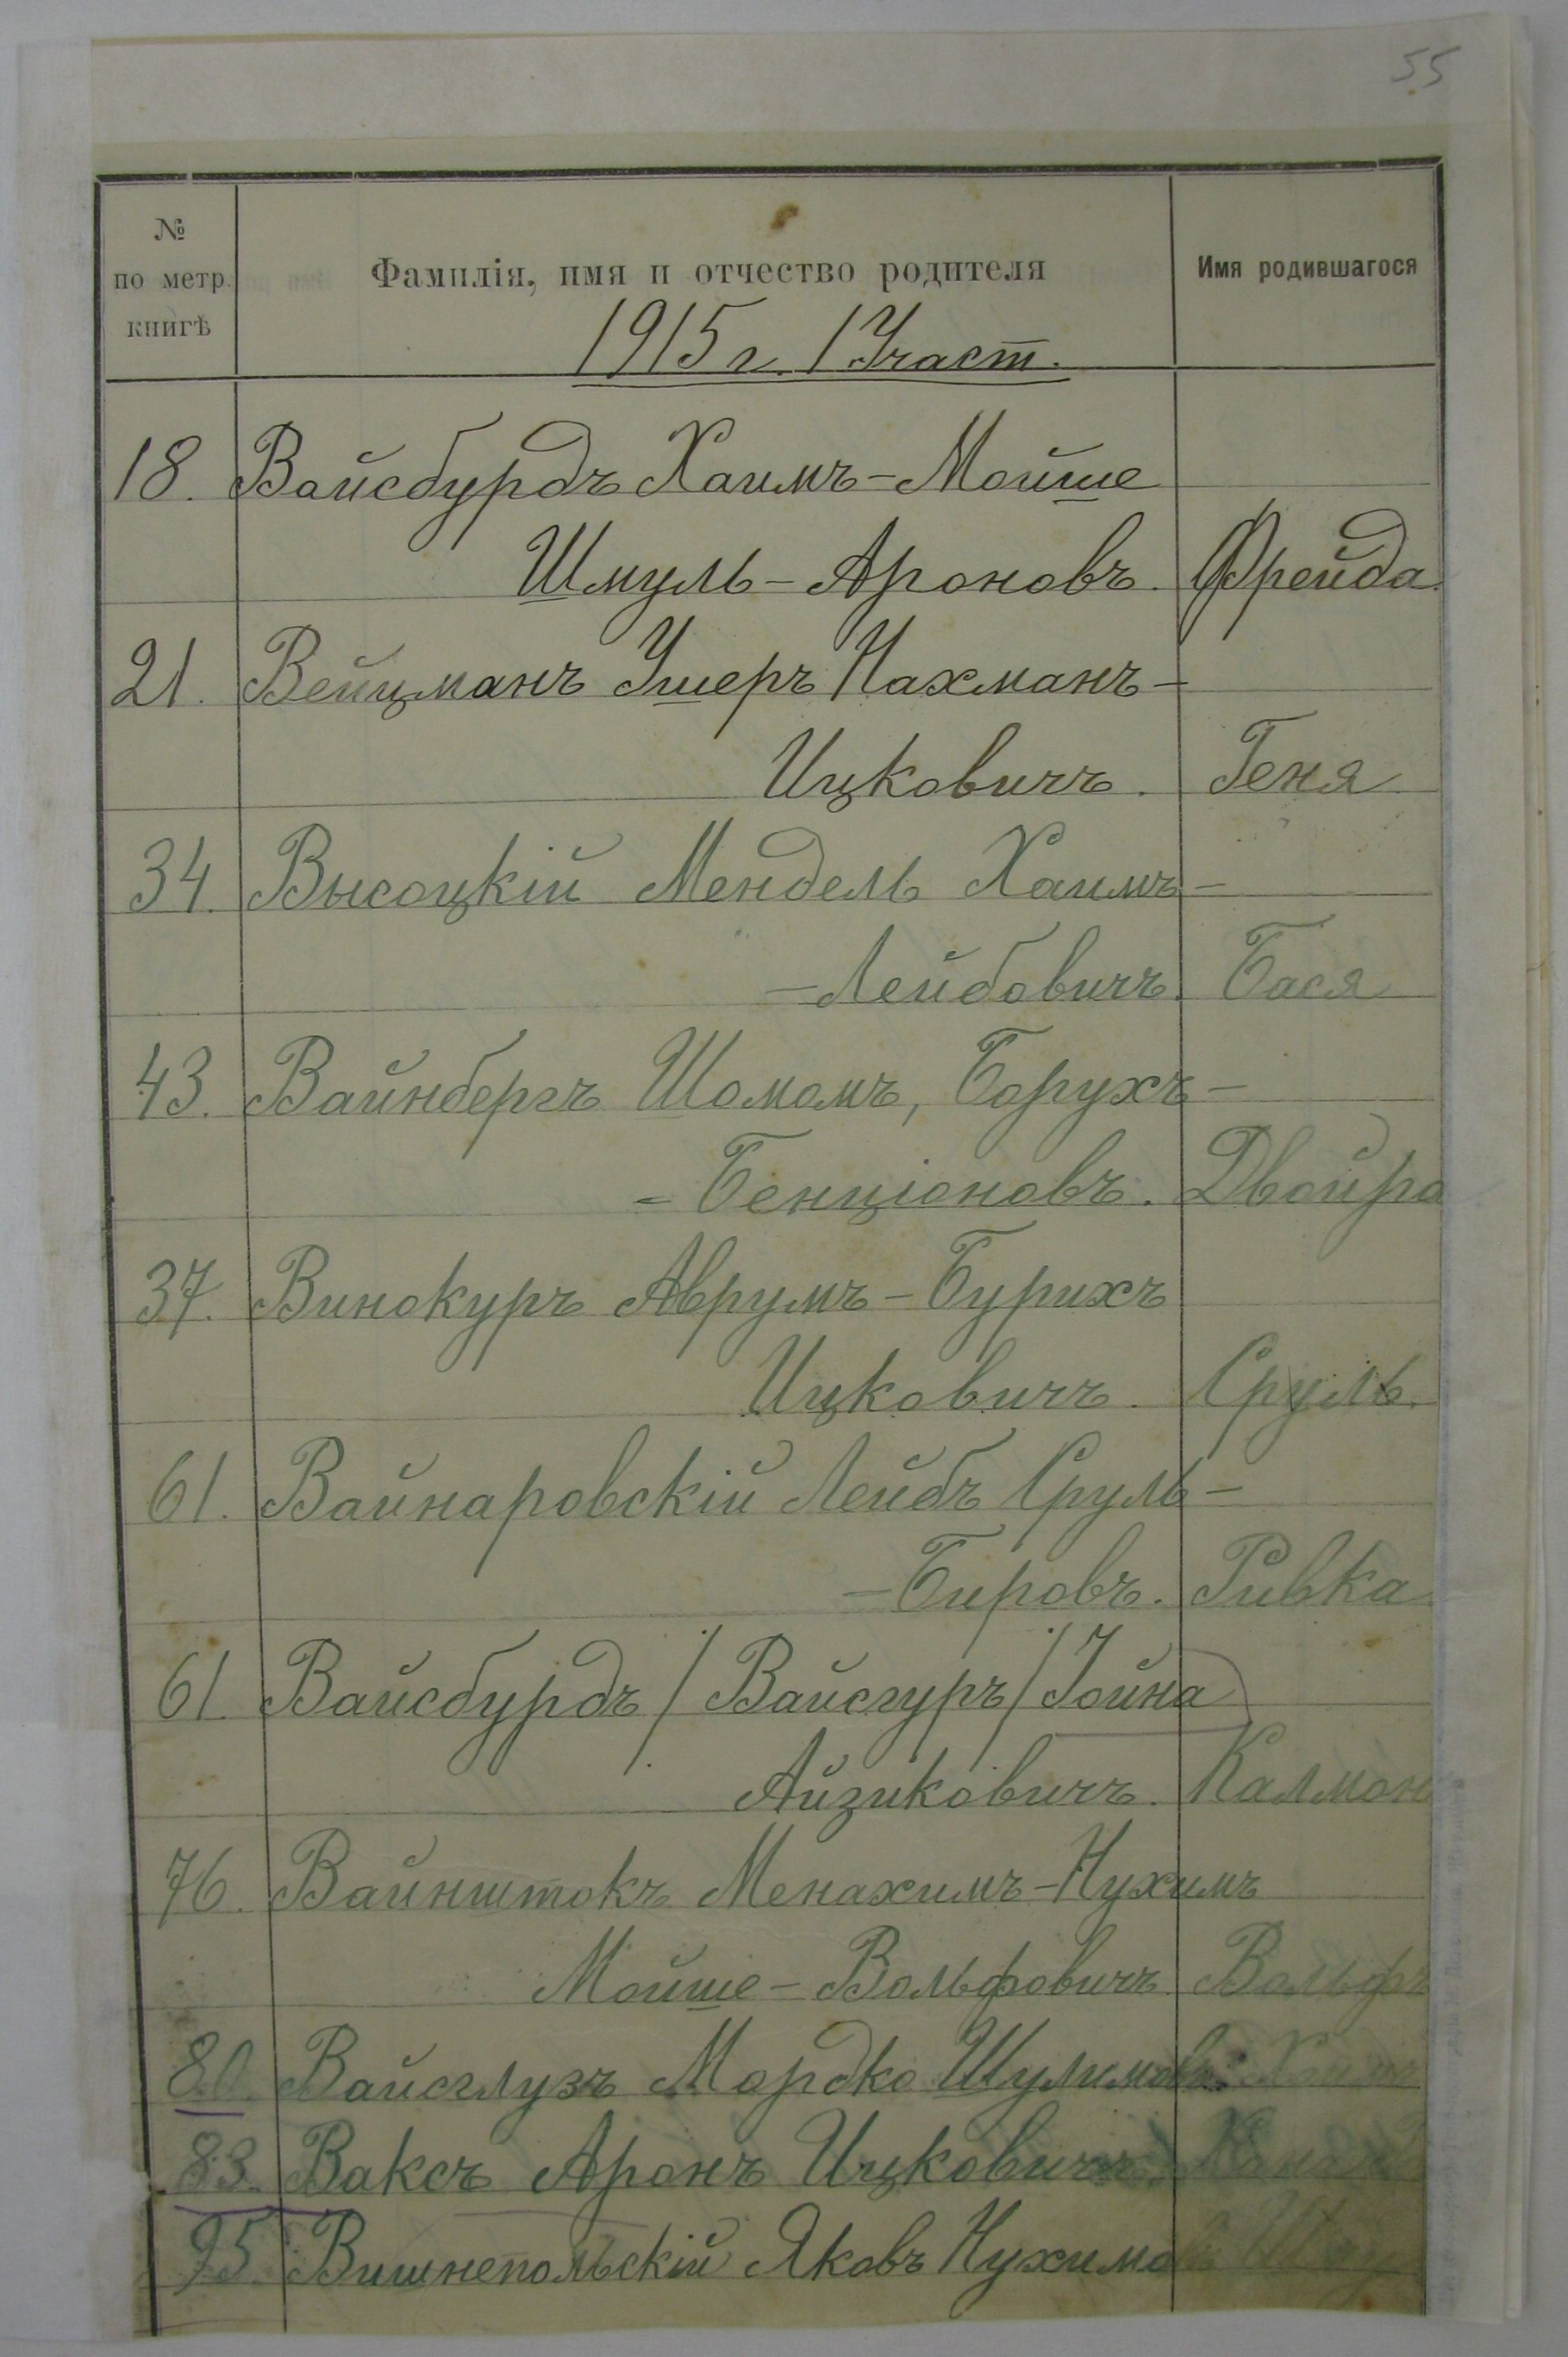 55
№ по метр. книгѣ Фамилія, имя и отчество родителя Имя родившагося
1915 г. 1 Участ.
18. Вайсбурдъ Хаимъ-Мойше
Шмуль-Ароновъ. Фрейда.
21. Вейцманъ Ушеръ Нахманъ-
Ицковичъ. Геня
34. Высоцкій Мендель Хаимъ-
-Лейбовичъ. Бася
43. Вайнбергъ Шоломъ, Борухъ-
-Бенціоновъ. Двойра
37. Винокуръ Аврумъ-Бурихъ
Ицковичъ. Сруль.
61. Вайнаровскій Лейбъ Сруль-
-Бировъ. Ривка
61. Вайсбурдъ /Вайсгуръ/ Іойна
Айзиковичъ. Калман
76. Вайнштокъ Менахимъ-Нухимъ
Мойше-Вольфовичъ Вольфъ
80. Вайсглузъ Мордко Шулимовъ
83. Ваксъ Аронъ Ицковичъ
95. Вишнепольскій Яковъ Нухимо